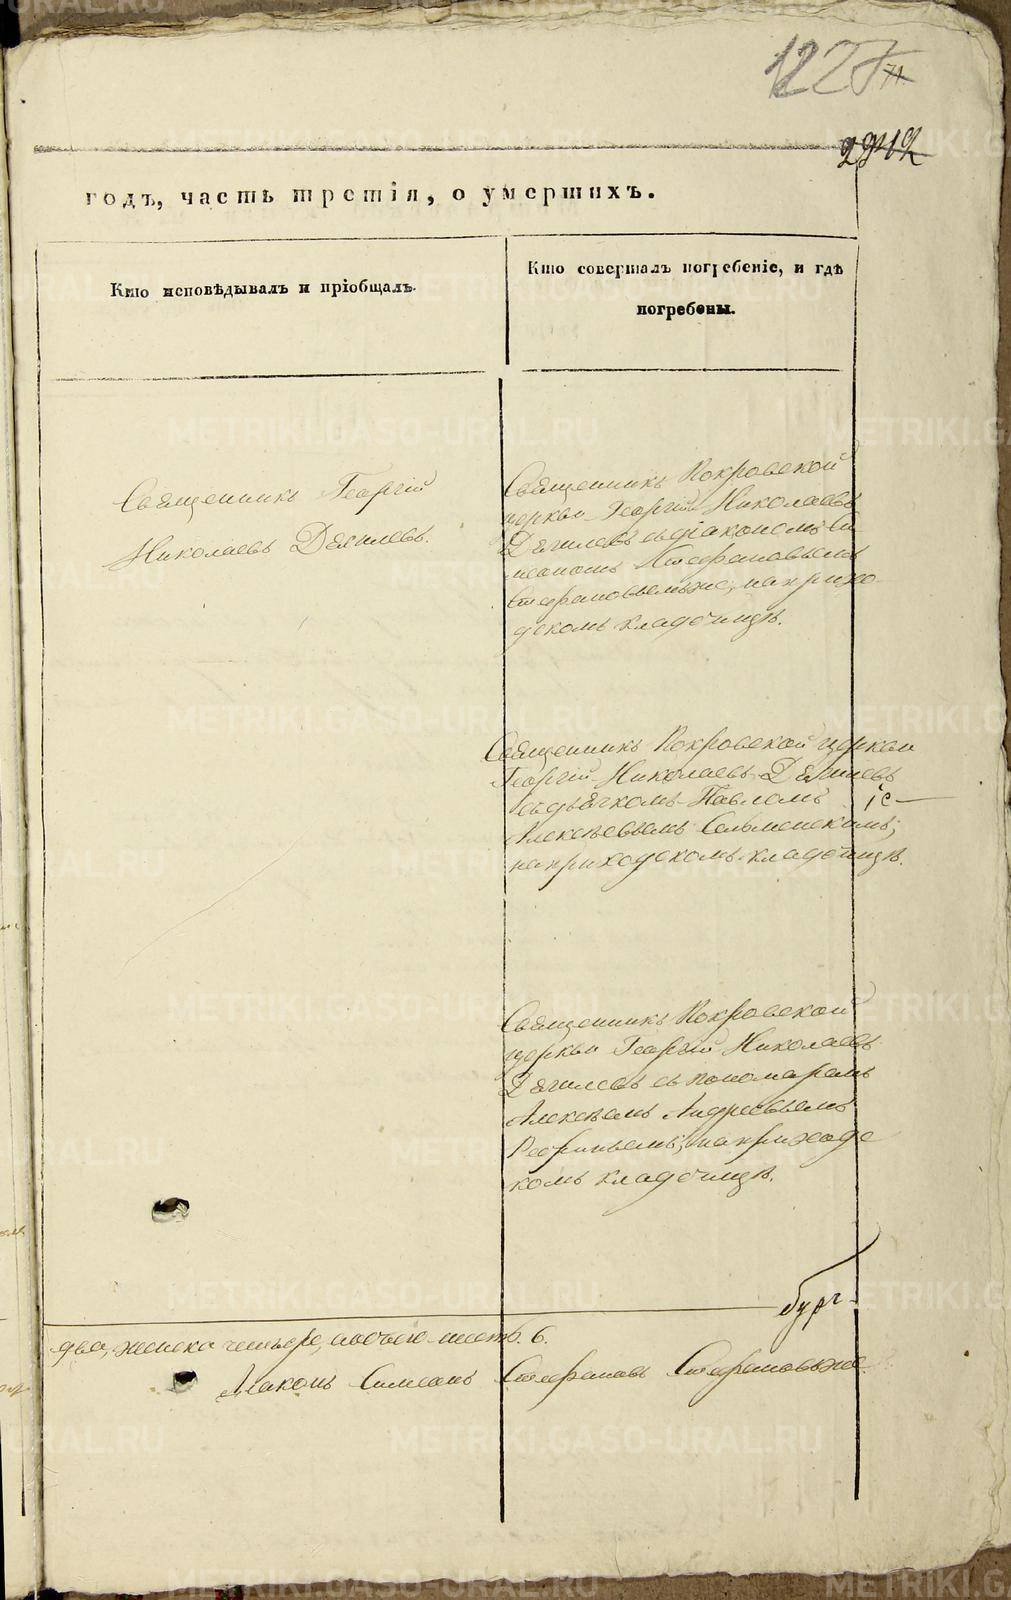 122
71.
2912
годъ, часть третія, о умершихъ.
Кто исповѣдывалъ и пріобщалъ.
Кто совершалъ погребеніе, и гдѣ
погребены.
Священникъ Георгій
Николаевъ Дягилевъ.
Священникъ Покровской
церкви Георгій Николаевъ
Дягилевъ съ діакономъ Си
меономъ Стефановымъ
Стефановымъ же, на прихо
дскомъ кладбищѣ.
Священникъ Покровской церкви
Георгій Николаевъ Дягилевъ
съ дьячкомъ Павломъ іе
Алексѣевымъ
на приходскомъ кладбищѣ.
Священникъ Покровской
церкви Георгій Николаевъ
Дягилевъ съ пономаремъ
Алексѣемъ Андреевымъ
на приходс
комъ кладбищѣ.
бург
два, женска четыре, обоего шесть. 6.
Діаконъ Симеонъ Стефановъ Стефановъ же
METRIKI.GASO-URAL.RU